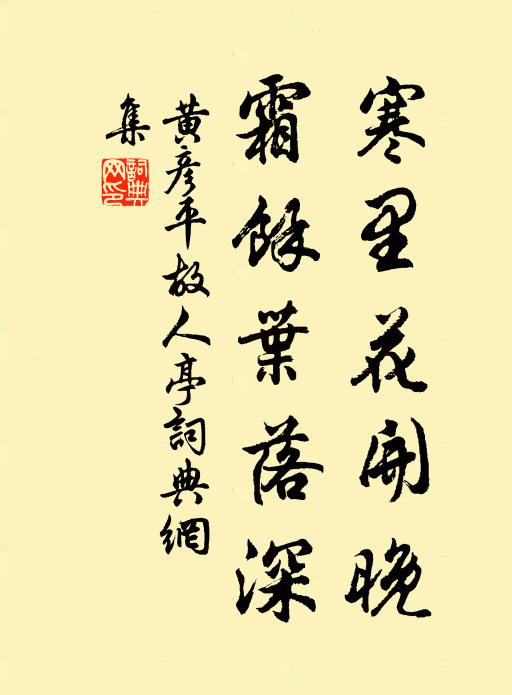 寒里花開晚
霜餘葉落深
黄彦平故人亭詞典網
集
詞典
网印